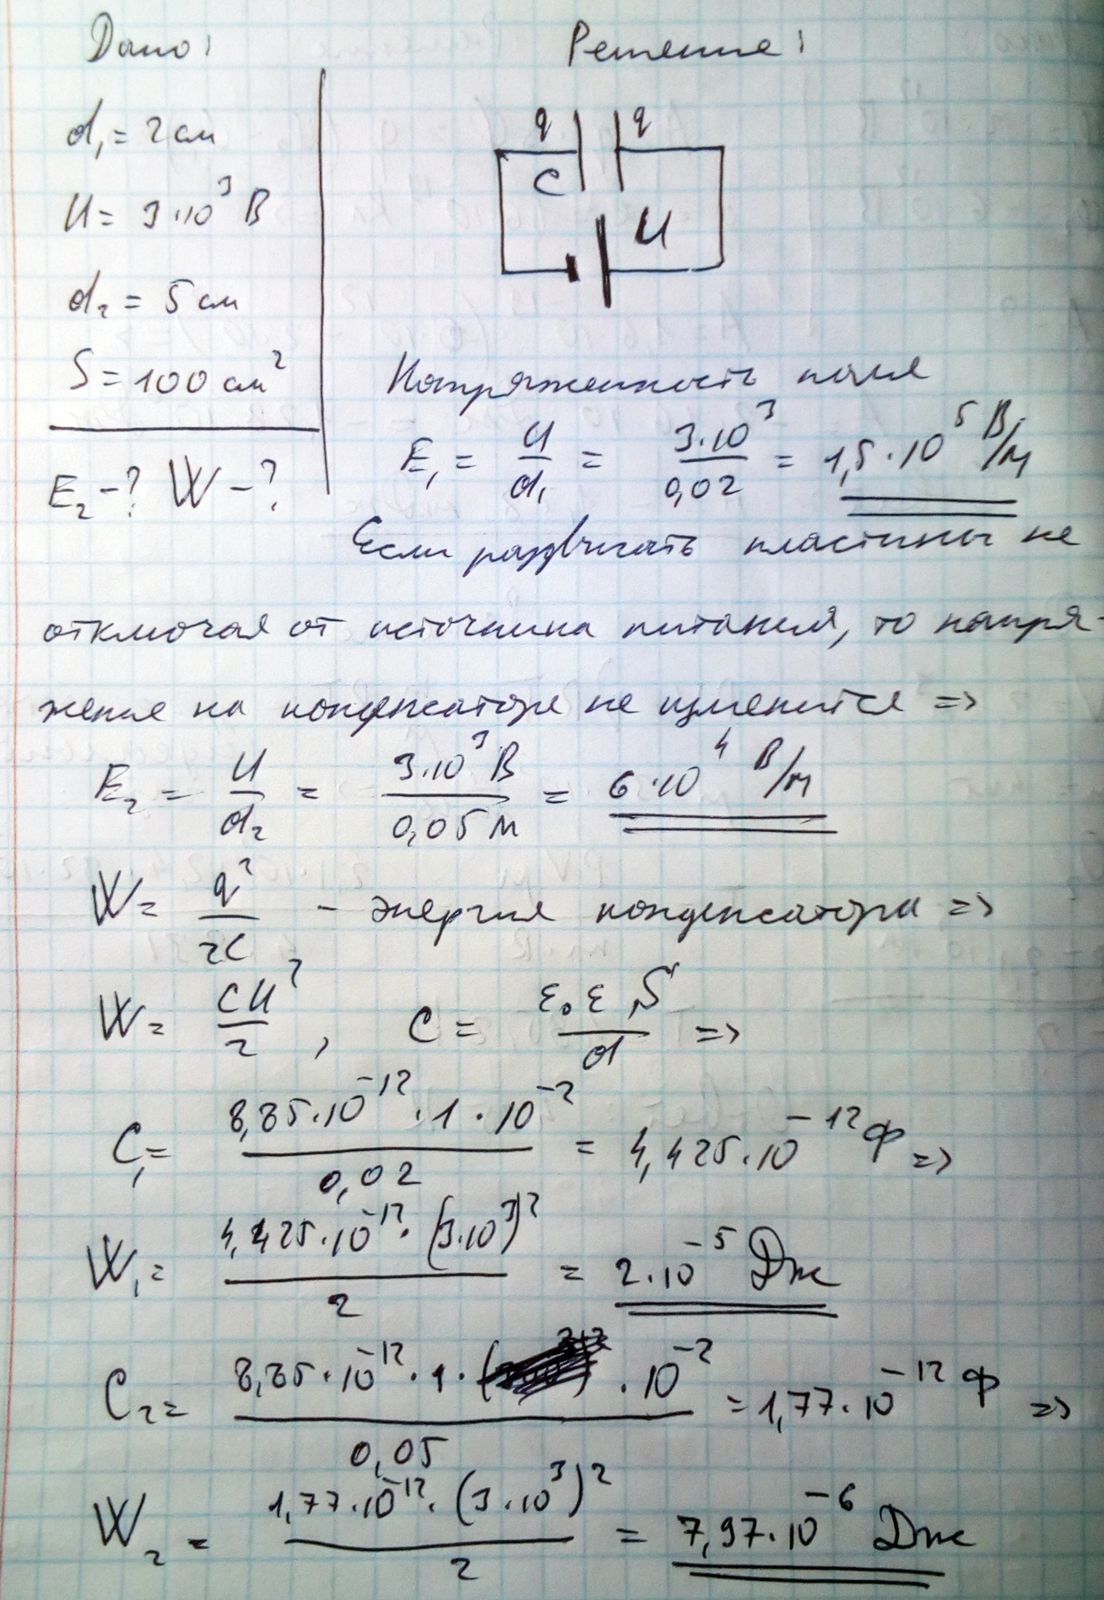 Дано:
Решение:
d₁ = 2 см
U = 3·10³ В
d₂ = 5 см
S = 100 см²
E₂ - ? W - ?
q q
C
U
Напряженность поля
E₁ = U/d₁ = 3·10³/0,02 = 1,5·10⁵ В/м
Если раздвигать пластины не
отключая от источника питания, то напря-
жение на конденсаторе не изменится =>
E₂ = U/d₂ = 3·10³ В/0,05 м = 6·10⁴ В/м
W = q²/2C - энергия конденсатора =>
W = CU²/2, C = ε₀ε S/d =>
C₁ = 8,85·10⁻¹²·1·10⁻²/0,02 = 4,425·10⁻¹² Ф =>
W₁ = 4,425·10⁻¹²·(3·10³)²/2 = 2·10⁻⁵ Дж
C₂ = 8,85·10⁻¹²·1··10⁻²/0,05 = 1,77·10⁻¹² Ф =>
W₂ = 1,77·10⁻¹²·(3·10³)²/2 = 7,97·10⁻⁶ Дж